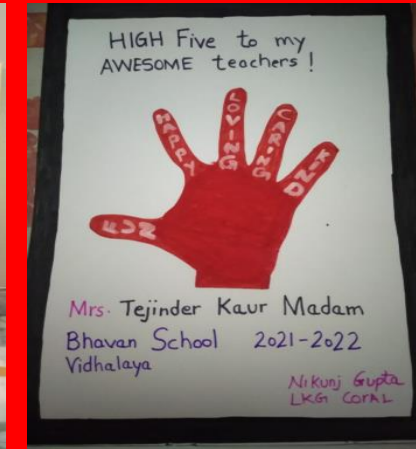 HIGH Five to my
AWESOME teachers!
FUN
HAPPY
LOVING
CARING
KIND
Mrs. Tejinder Kaur Madam
Bhavan School 2021-2022
Vidhalaya
Nikunj Gupta
LKG CORAL